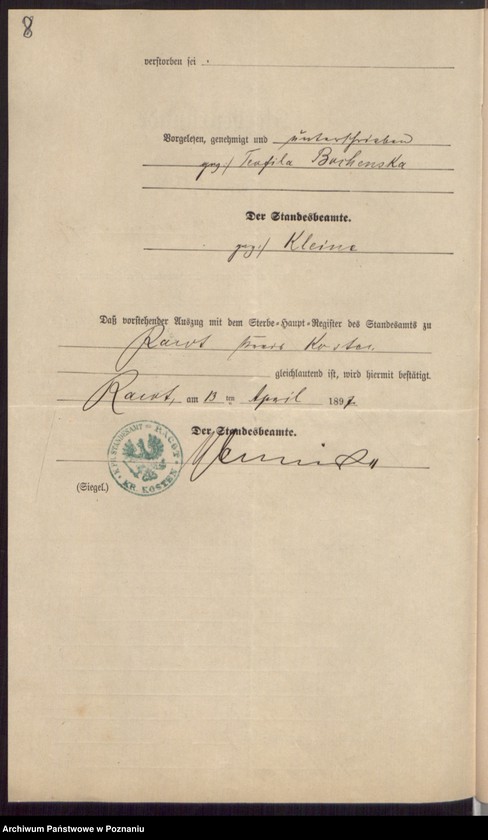 8
verstorben sei .
Vorgelesen, genehmigt und unterschrieben
gez/ Teofila Bochenska
Der Standesbeamte.
gez/ Kleine
Daß vorstehender Auszug mit dem Sterbe-Haupt-Register des Standesamts zu
Racot Kreis Kosten
gleichlautend ist, wird hiermit bestätigt.
Racot, am 13 ten April 1897
Der Standesbeamte.
K. PR. STANDESAMT RACOT
KR. KOSTEN
(Siegel.)
Archiwum Państwowe w Poznaniu